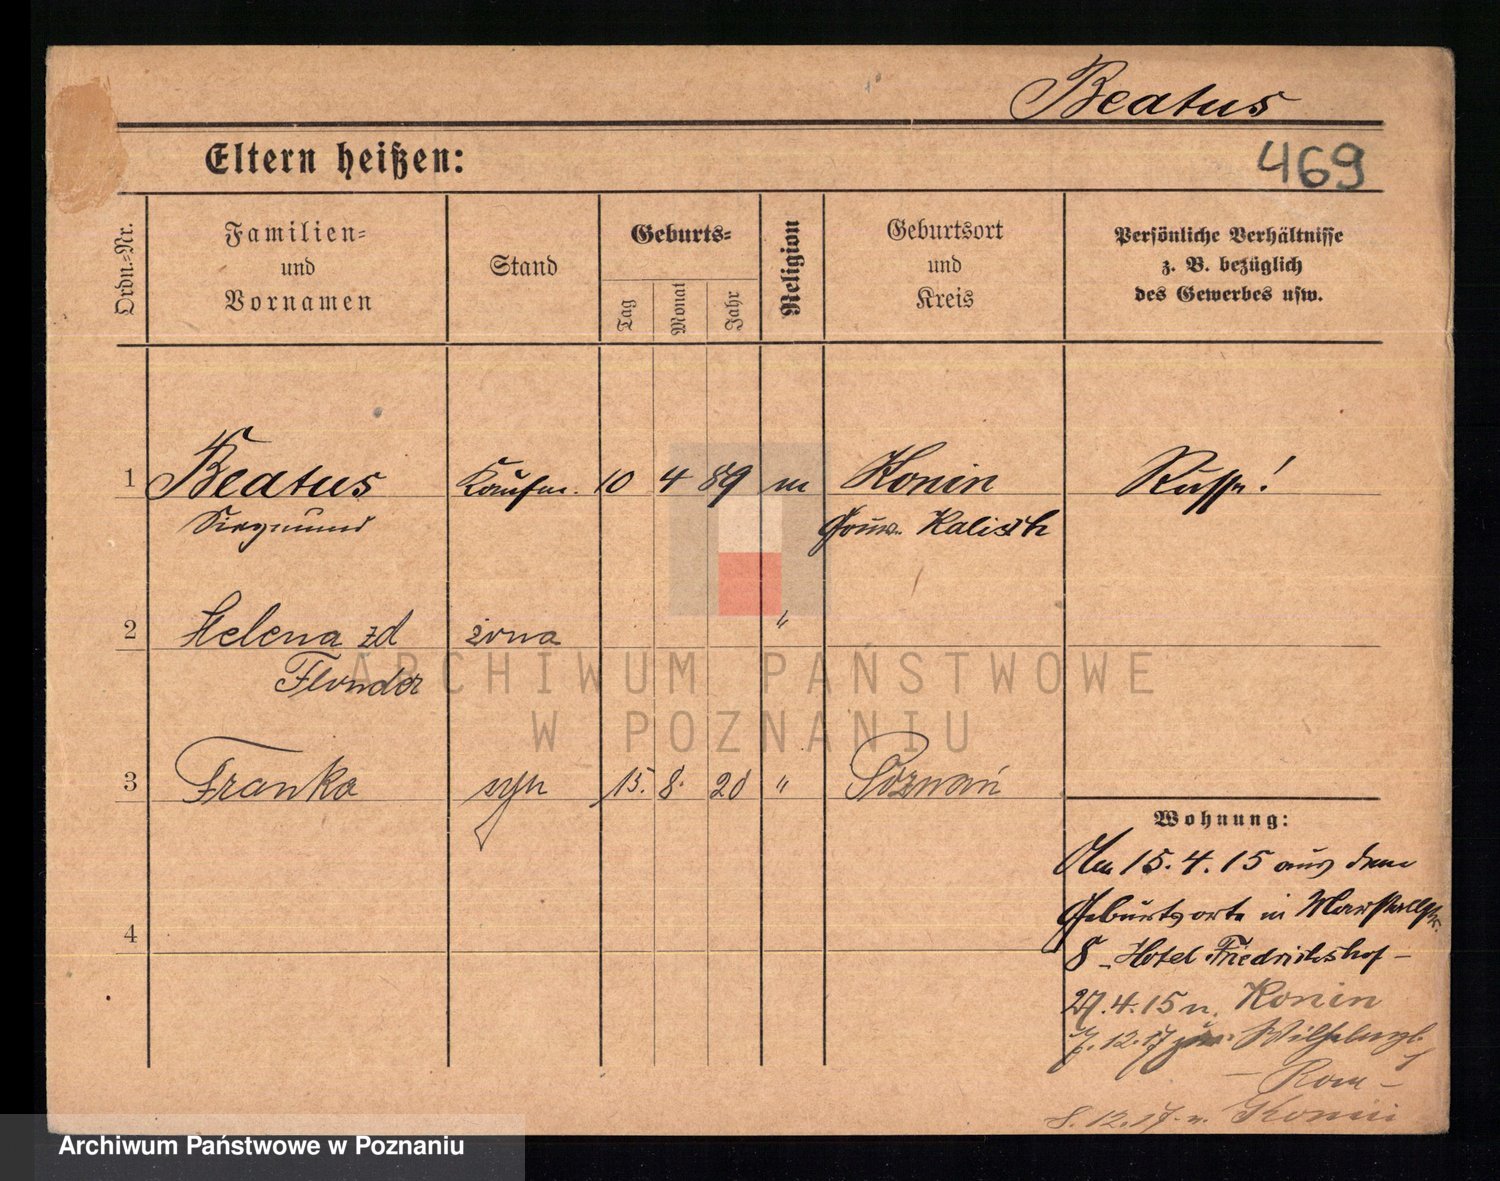 Beatus
Eltern heißen:
469
Ordn.=Nr.
Familien=
und
Vornamen
Stand
Geburts=
Tag
Monat
Jahr
Religion
Geburtsort
und
Kreis
Persönliche Verhältnisse
z. B. bezüglich
des Gewerbes usw.
1 Beatus Kaufm. 10 4 89 m Konin Russe!
Siegmund Gouv. Kalisch
2 Helena zd żona "
Flonder
3 Franka syn 15. 8. 20 " Poznań
Wohnung:
Am 15.4.15 aus dem
Geburtsorte in Marstallstr.
8 - Hotel Friedrichshof -
4
27.4.15 n. Konin
7.12.17
8.12.17 n. Konin
ARCHIWUM PAŃSTWOWE
W POZNANIU
Archiwum Państwowe w Poznaniu